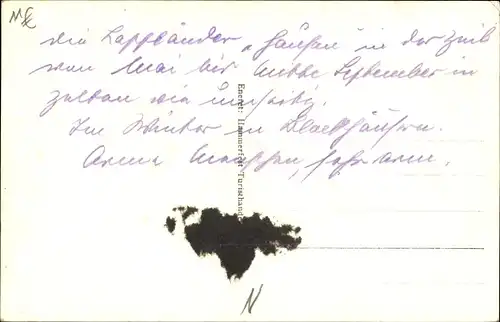 M
die Lappländer „hausen“ in der Zeit
von Mai bis Mitte September in
Zelten wie umseitig.
Im Winter in Blockhäusern.
Arme Menschen, sehr arm.
Eneret: Hammerfest Turisthandel
N